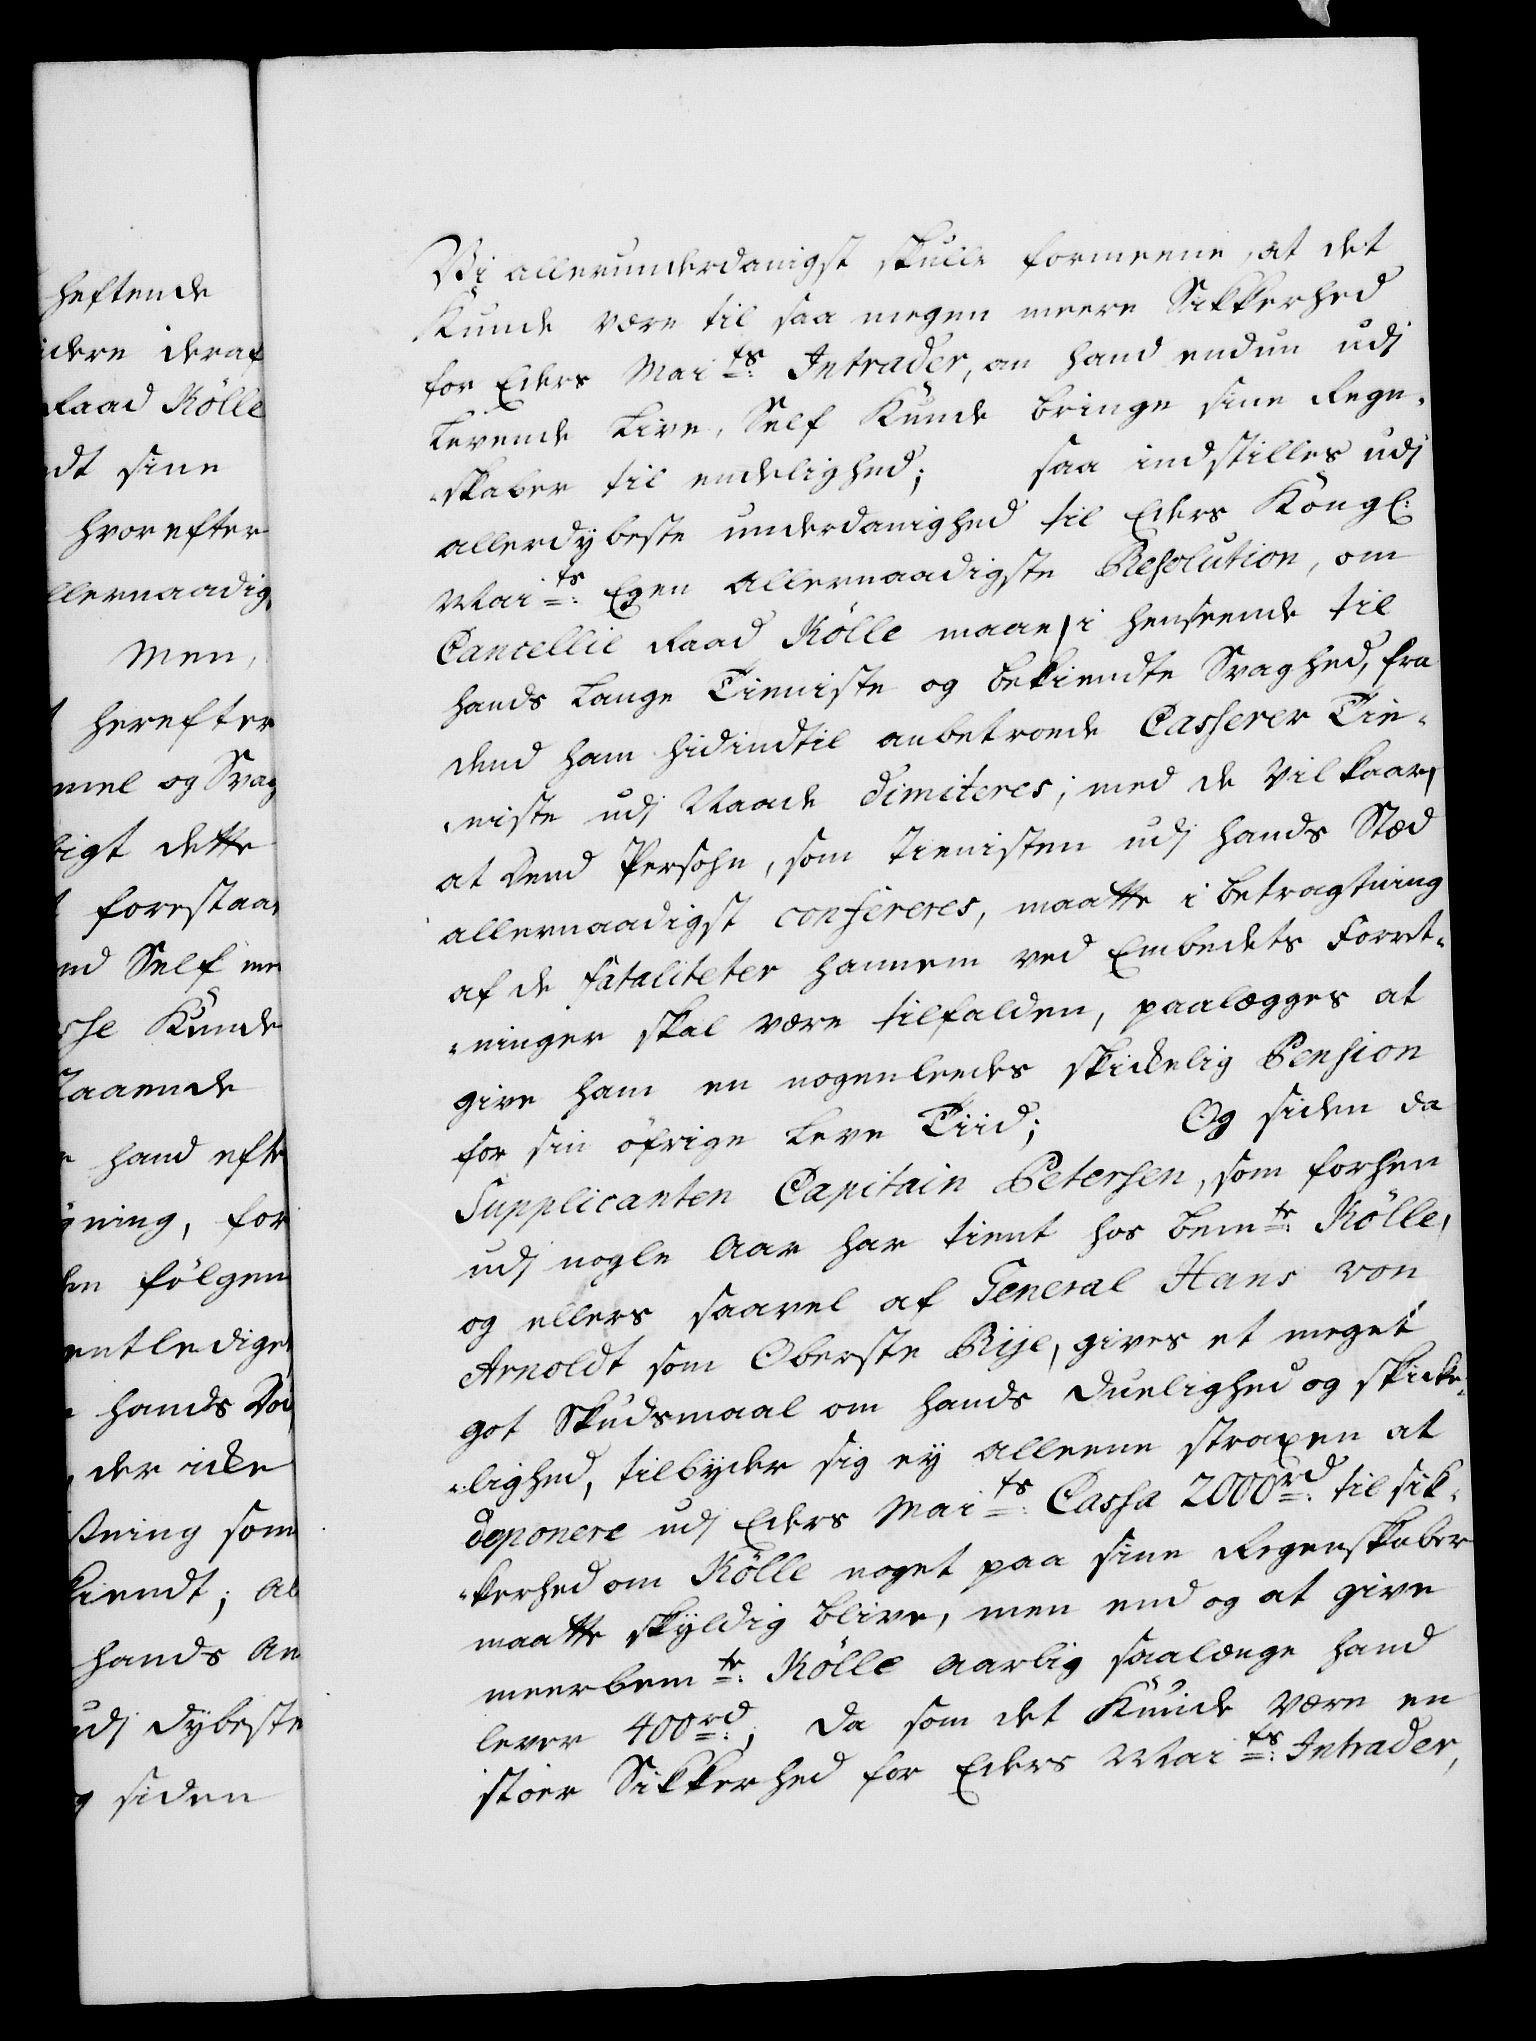 heftende
idere deraf
Raad Rölle
dt sine
hvorefter
llernaadig
Men,
herefter
mel og Svag
ligt dette
forestaa
nd Self
Kunde
Staaende
hand efte
gning, for
en fölgen
entlediget
hands
der icke
stning som
kiendt; al
hands An
udj dybeste
siden
Vi allerunderdanigst skulle formeene, at det
Kunde være til saa megen meere Sikkerhed
for Eders Mai^ts: Intrader, om hand endnu udj
Levende Live, Self Kunde bringe sine Regn-
skaber til endelighed; saa indstilles udj
allerdybeste underdanighed til Eders Köngl:
Mai^ts: Egen Allernaadigste Resolution, om
Cancellie Raad Rölle maae, i henseende til
hands Lange Tieniste og bekiendte Svaghed, fra
dend ham hidindtil anbetroede Casserer Tie-
niste udj Naade dimiteres; med de Vilkaar,
at Dend Persohn, som Tienisten udj hands Stæd
allernaadigst confereres, maatte i betragtning
af de fataliteter hannem ved Embedets Forret-
ninger skal være tilfalden, paalægges at
give ham en nogenleedes skickelig Pension
for sin öfrige Leve Tiid; Og siden da
Supplicanten Capitain Petersen, som forhen
udj nogle Aar har tient hos bem^te: Rölle,
og ellers saavel af General Hans von
Arnoldt som Oberste Rije, gives et meget
got Skudsmaal om hands Duelighed og skicke-
lighed, tilbyder sig ey alleene straxen at
deponere udj Eders Mai^ts: Cassa 2000 rd: til sik-
kerhed om Rölle noget paa sine Regenskaber
maatte skyldig blive, men end og at give
meerbem^te: Rölle Aarlig saalænge hand
lever 400 rd:; Da som det Kunde være en
stoer Sikkerhed for Eders Mai^ts: Intrader,